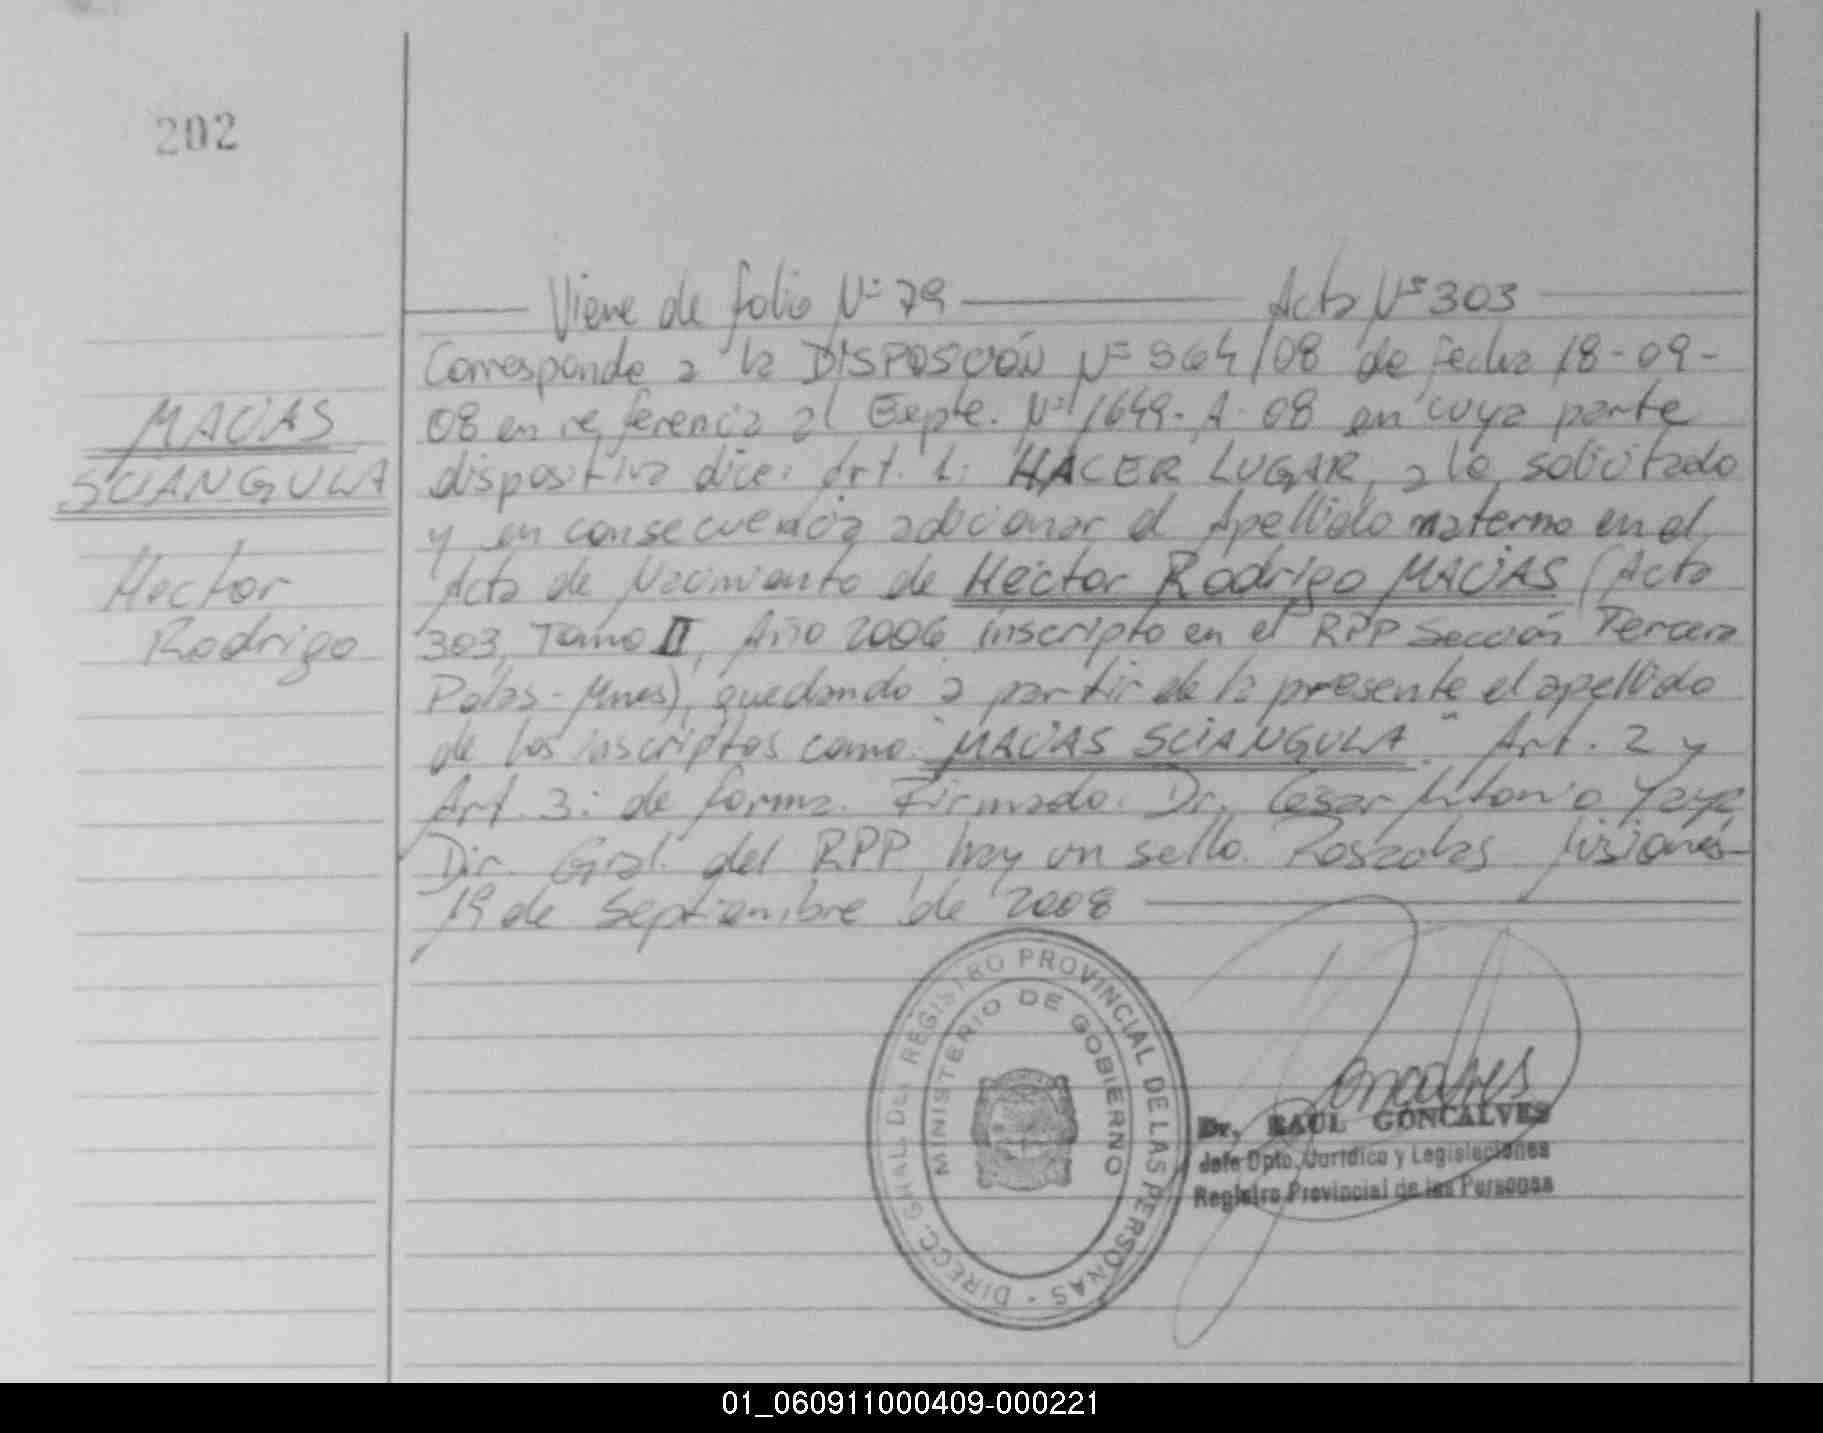 202
Viene de folio Nº 79 Acta Nº 303
Corresponde a la DISPOSCIÓN Nº 964/08 de fecha 18-09-
08 en referencia al Expte. Nº 1649-A-08 en cuya parte
dispositiva dice: Art. 1: HACER LUGAR, a lo solicitado
y en consecuencia adicionar el Apellido materno en el
Acta de Nacimiento de Héctor Rodrigo MACIAS (Acta
303, Tomo II, Año 2006 inscripto en el RPP Sección Tercera
Pdas-Mnes), quedando a partir de la presente el apellido
de los inscriptos como: "MACIAS SCIANGULA". Art. 2 y
Art. 3: de forma. Firmado. Dr. Cesar Antonio
Dir. Gral. del RPP, hay un sello. Posadas Misiones
19 de Septiembre de 2008
MACIAS
SCIANGULA
Hector
Rodrigo
DIRECC. GRAL. DEL REGISTRO PROVINCIAL DE LAS PERSONAS -
MINISTERIO DE GOBIERNO
Goncalves
Dr. RAUL GONCALVES
Jefe Dpto. Jurídico y Legislaciones
Registro Provincial de las Personas
01_060911000409-000221